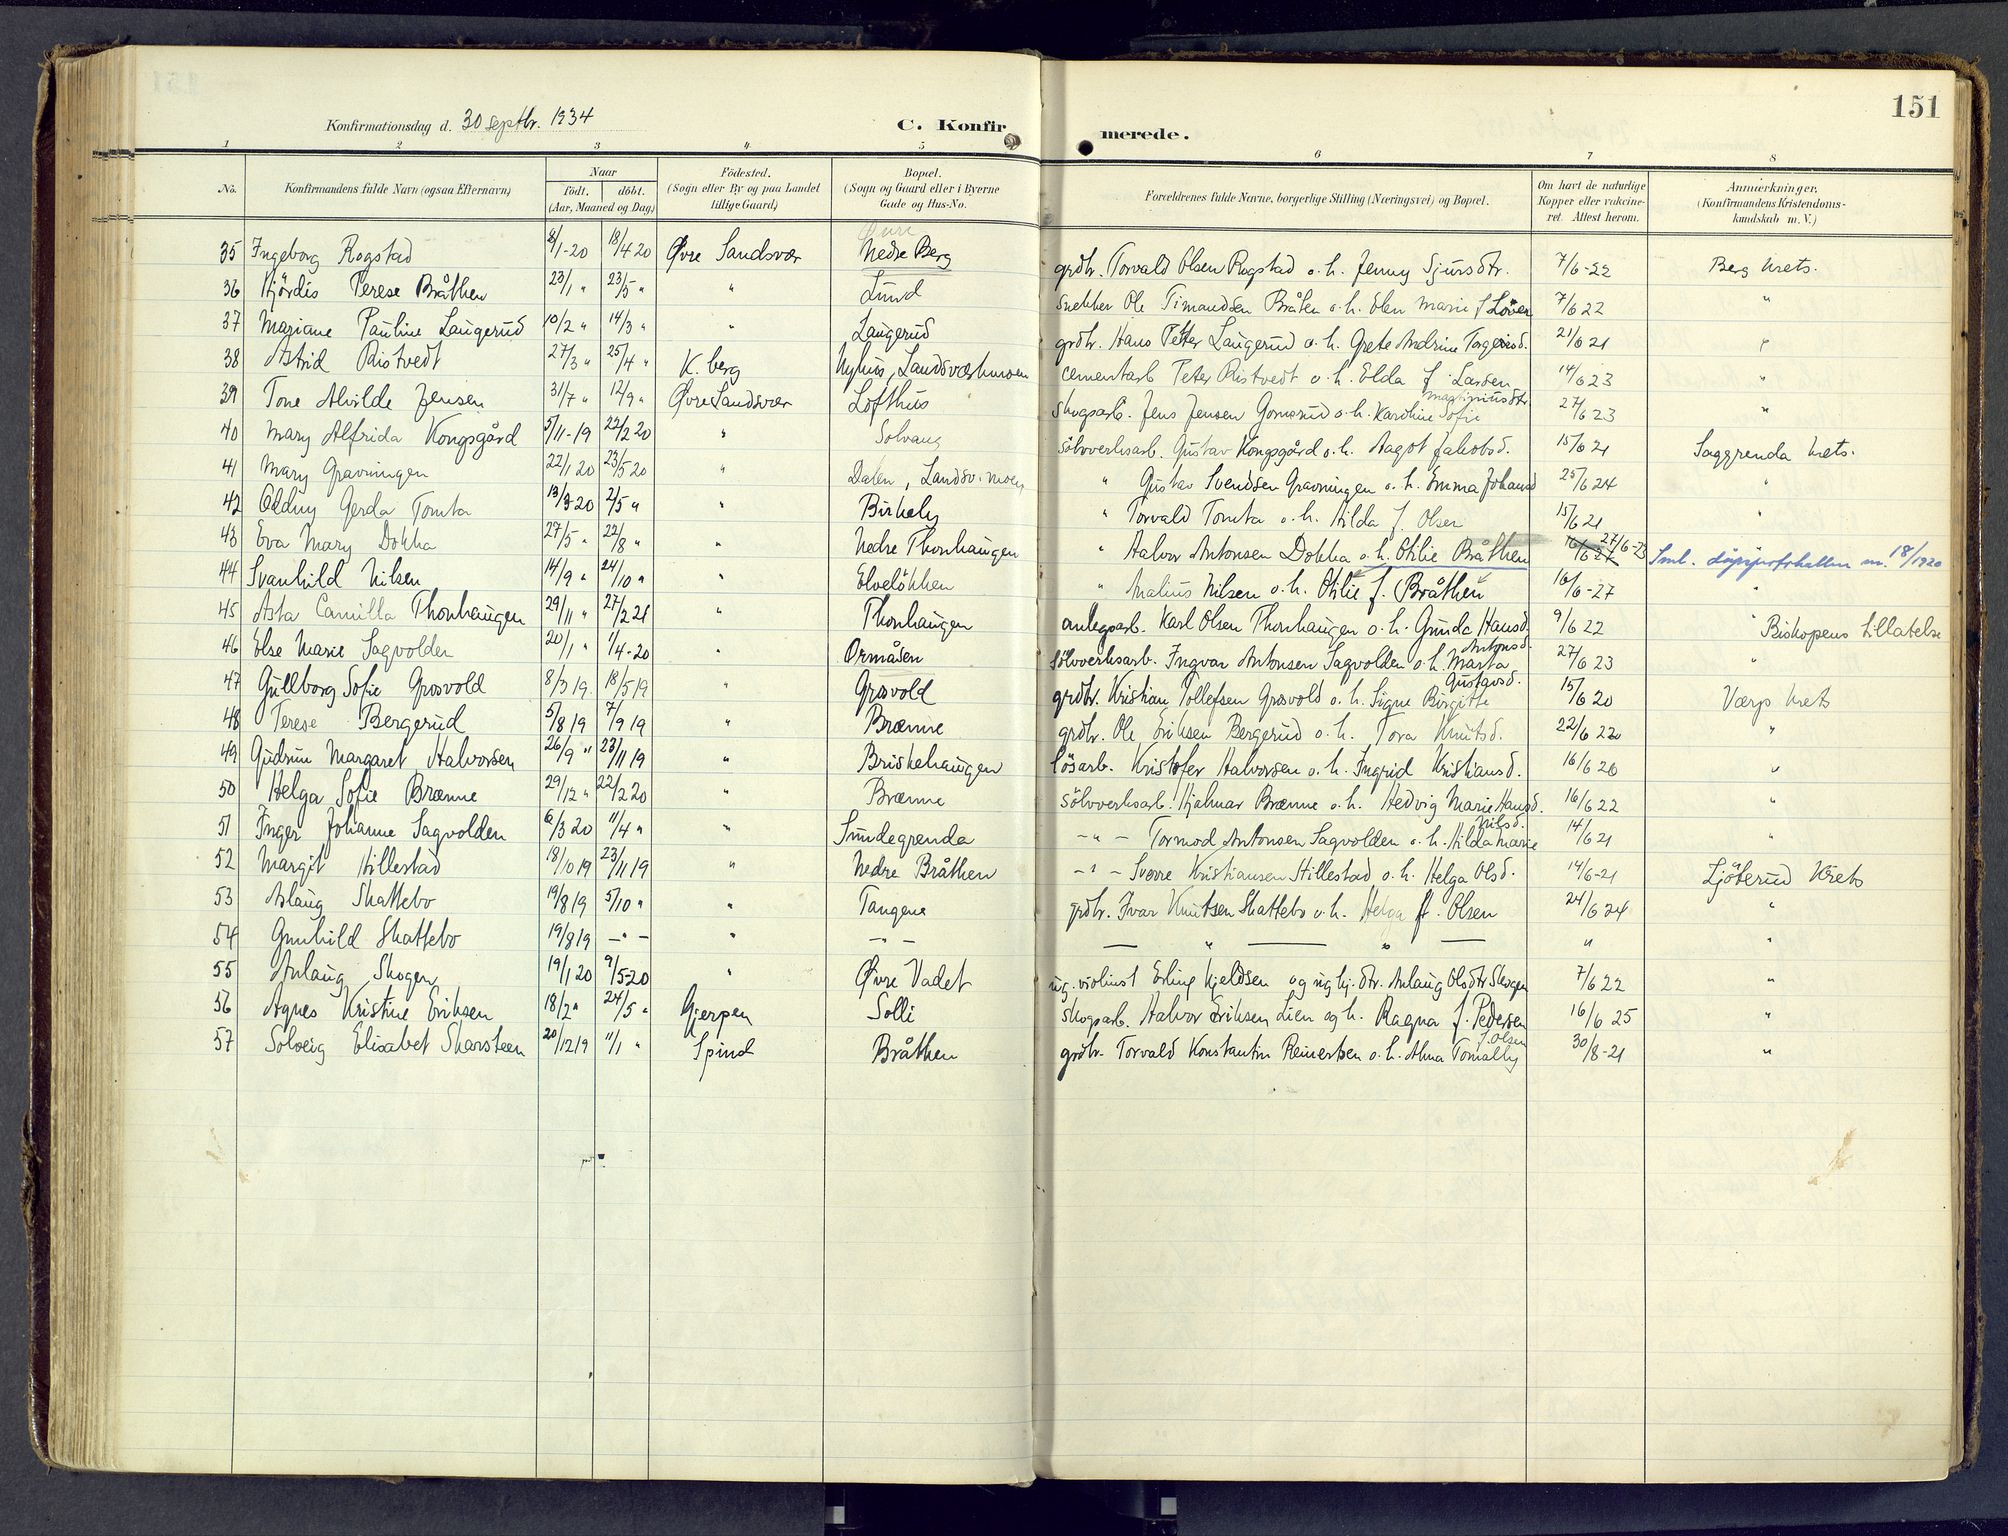 151
Konfirmationsdag d. 30 septbr. 1934
C. Konfirmerede.
1 2 3 4 5 6 7 8
No. Konfirmandens fulde Navn (ogsaa Efternavn) Naar født. døbt. (Aar, Maaned og Dag) Fødested. (Sogn eller By og paa Landet tillige Gaard) Bopæl. (Sogn og Gaard eller i Byerne Gade og Hus-No. Forældrenes fulde Navne, borgerlige Stilling (Næringsvei) og Bopæl. Om havt de naturlige Kopper eller vakcineret. Attest herom. Anmærkninger. (Konfirmandens Kristendomskundskab m. V.)
Øvre
35 Ingeborg Rogstad 8/1-20 18/4 20 Øvre Sandsvær Nedre Berg grdbr. Torvald Olsen Rogstad o.h. Jenny Sjursdtr. 7/6-22 Berg krets.
36 Hjördis Terese Bråthen 23/1 " 23/5 " " Lund snekker Ole Timandsen Bråten o.h. Elen Marie f. Löver 7/6 22 "
37 Mariane Pauline Laugerud 10/2 " 14/3 " " Laugerud grdbr. Hans Petter Laugerud o.h. Grete Andrine Torgersd. 21/6 21 "
38 Astrid Ristvedt 27/3 " 25/4 " K.berg Nyhus, Landsværkmoen cementarb. Peter Ristvedt o.h. Elda f. Larsen 14/6 23 "
39 Tone Alvilde Jensen 31/7 " 12/9 " Øvre Sandsvær Lofthus skogsarb. Jens Jensen Gomsrud o.h. Karoline Sofie Martiniusdtr. 27/6 23 "
40 Mary Alfrida Kongsgård 5/11-19 22/2 20 " Solvang sölvverksarb. Gustav Kongsgård o.h. Aagot Jakobsd. 15/6 21 Saggrenda krets.
41 Mary Gravningen 22/1 20 23/5 20 " Dalen, Landsv.moen " Gustav Svendsen Gravningen o.h. Emma Johansd 25/6 24 "
42 Oddny Gerda Tomta 13/3 20 2/5 " " Birkely " Torvald Tomta o.h. Hilda f. Olsen 15/6 21 "
43 Eva Mary Dokka 27/5 " 22/8 " " Nedre Thonhaugen " Halvor Antonsen Dokka o.h. Otilie Bråthen 27/6-23 Sml. dåpsprotokollen nr. 18/1920
44 Svanhild Nilsen 14/9 " 24/10 " " Elvelökken " Malius Nilsen o.h. Otilie f. Bråthen 16/6-27 "
45 Asta Camilla Thonhaugen 29/11 " 27/2 21 " Thonhaugen anlegsarb. Karl Olsen Thonhaugen o.h. Gunda Hansd. 9/6 22 " Biskopens tillatelse
46 Else Marie Sagvolden 20/1 " 1/4-20 " Ormåsen sölvverksarb. Ingvar Antonsen Sagvolden o.h. Marta Antonsd. 27/6 23 "
47 Gullborg Sofie Grosvold 8/3 19. 18/5 19 " Grosvold grdbr. Kristian Tollefsen Grosvold o.h. Signe Birgitte Gustavsd. 15/6 20 Værp krets
48 Terese Bergerud 5/8 19 7/9 19 " Brænne grdbr. Ole Eriksen Bergerud o.h. Tora Knutsd. 22/6 22 "
49 Gudrun Margaret Halvorsen 26/9 " 23/11 19 " Briskehaugen lösarb. Kristofer Halvorsen o.h. Ingrid Kristiansd. 16/6 20 "
50 Helga Sofie Brænne 29/12 " 22/2 20 " Brænne sölvverksarb. Hjalmar Brænne o.h. Hedvig Marie Hansd. 16/6 22 "
51 Inger Johanne Sagvolden 6/3 20 11/4 " " Sundegrenda -"- Tormod Antonsen Sagvolden o.h. Hilda Marie Nilsd. 14/6 21 "
52 Margit Hillestad 18/10 19 23/11 19 " Nedre Bråthen -"- Sverre Kristiansen Hillestad o.h. Helga Olsd. 14/6-21 Ljöterud krets
53 Aslaug Skattebo 19/8 19 5/10 " " Tangene grdbr. Ivar Knutsen Skattebo o.h. Helga f. Olsen 24/6 24 "
54 Gunhild Skattebo 19/8 19 -"- " -"- — " — " — " "
55 Anlaug Skogen 19/1 20 9/5-20 " Øvre Vadet ug. violinist Erling Kjeldsen og ug. hj. dtr. Anlaug Olsdtr Skogen 7/6 22 "
56 Agnes Kristine Eriksen 18/2 " 24/5 " Gjerpen Solli skogsarb. Halvor Eriksen Lien og h. Ragna f. Pedersen 16/6 25 "
57 Solveig Elisabet Skarsteen 20/12 19 11/1 " Spind Bråthen grdbr. Torvald Konstantin Reinertsen o.h. Alma Tomally f. Olsen 30/8-21 "